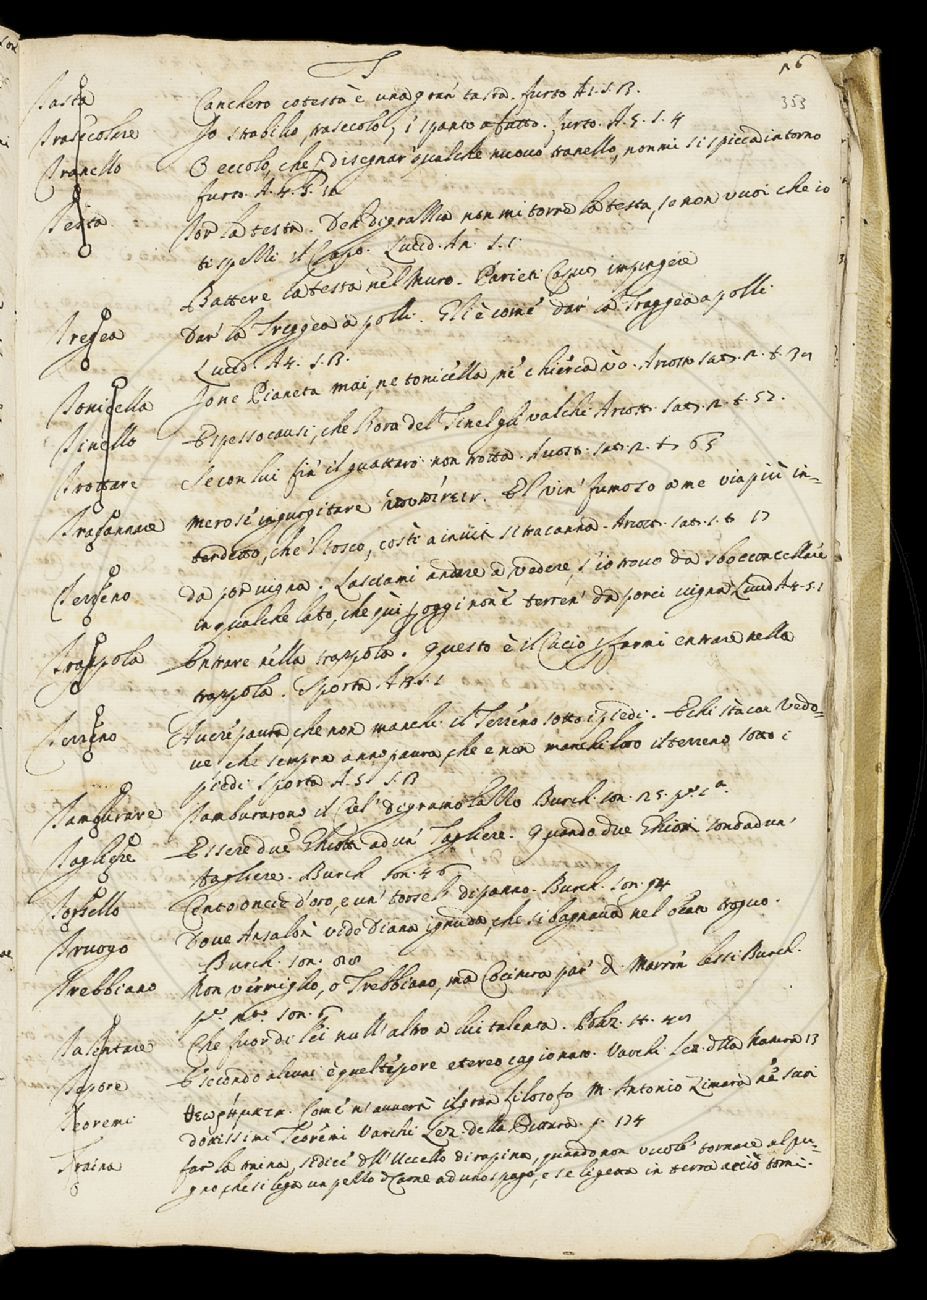 T
353
Tasta Canchero cotesta è una gran tasta. furto A.1.S.13.
Trasecolare Io strabilio, trasecolo, i spanto affatto. furto. A.5.S.4
Tranello O eccolo, che disegnar qualche nuovo tranello, non mi si spicca dintorno
furto. A.4.
Testa Tor la testa. Deh di grazia non mi torre la testa, se non vuoi che io
ti spelli il Capo. Lucid. A.
Battere la testa nel Muro. Parieti Caput impingere
Tregea Dar la Treggea a polli. Ell'è come dar la Traggea a polli
Lucid. A.4. S.
Tonicella Io ne Pianeta mai, ne tonicella, nè chierca vò. Ariost. sat. 2. t. 39
Tinello E spesso causi, che l'ora del Tinel gli valchi Ariost. sat. 2. t. 52.
Trottare Se con lui fin' il guattaro non trotta. Ariost. sat. 2. t. 65
Tracannare Mero se ingurgitare. El vin' fumoso a me via più in-
terdetto, che'l tosco, costì a inviti si tracanna. Ariost. sat. t. 17
Terreno da por vigna. Lasciami andare a vedere, s'io trovo da sbocconcellare
in qualche lato, che quì oggi non è terren' da porci vigna Lucid A.4.S.1
Trappola Entrare nella trappola. Questo è il Cacio farmi entrare nella
trappola. Sporta A
Terreno Havere paura, che non manchi il Terreno sotto i piedi. E chi sta con Vedo-
ve che sempre anno paura, che e non manchi loro il terreno sotto i
piedi Sporta A.5 S.
Tamburare Tamburarono il Burch. son. 25.
Tagliere Essere due Ghiotti ad un' Tagliere. Quando due Ghiotti sono ad un'
tagliere. Burch. son. 46
Torsello Cento oncie d'oro, e un' torsel' di panno. Burch. son. 94
Truogo Dove Ansalon' vide Diana ignuda, che si bagnava nel truogo.
Burch. son. 88
Trebbiano Non vermiglio, o Trebbiano, ma Cocitura par' di Marron' lessi Burch.
son. 6
Talentare Che fuor di lei null' altro a lui talenta. Poliz. st. 49
Tepore E secondo alcuni è quel tepore etereo cagionato. Varchi Lez. della Natura 13
Teoremi θεωρήματα. Come n'avvertì il gran filosofo M. Antonio Zimara ne' suoi
dottissimi Teoremi Varchi Lez. della Pittura. p. 174
Traina far la traina, si dice dell' Uccello di rapina, quando non vuole tornare al pu-
gno, che si lega un pello di Carne ad uno spago, e se li getta in terra acciò torni.